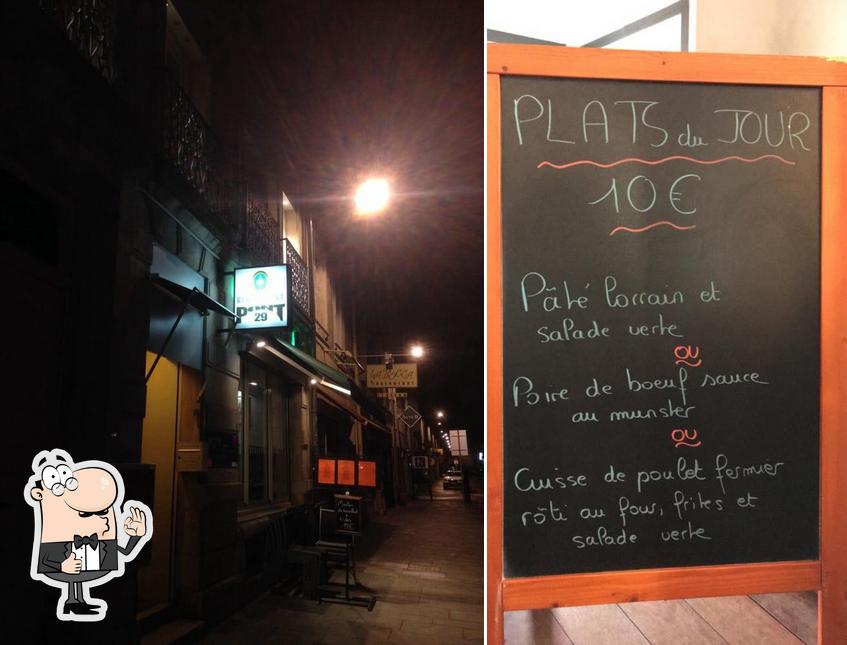 PONT
29
PLATS du JOUR
10€
Pâté lorrain et
salade verte
ou
Poire de boeuf sauce
au munster
ou
Cuisse de poulet fermier
rôti au four, frites et
salade verte